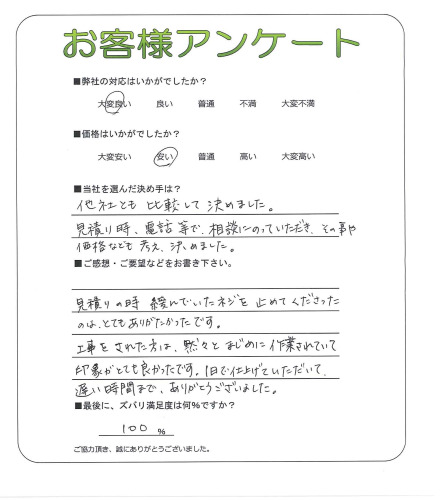 お客様アンケート
■弊社の対応はいかがでしたか?
大変良い 良い 普通 不満 大変不満
■価格はいかがでしたか?
大変安い 安い 普通 高い 大変高い
■当社を選んだ決め手は?
他社とも比較して決めました。
見積り時、電話等で、相談にのっていただき、その事や
価格なども考え、決めました。
■ご感想・ご要望などをお書き下さい。
見積りの時 緩んでいたネジを止めてくださった
のは、とてもありがたかったです。
工事をされた方は、黙々とまじめに作業されていて
印象がとても良かったです。1日で仕上げていただいて、
遅い時間まで、ありがとうございました。
■最後に、ズバリ満足度は何%ですか?
100 %
ご協力頂き、誠にありがとうございました。